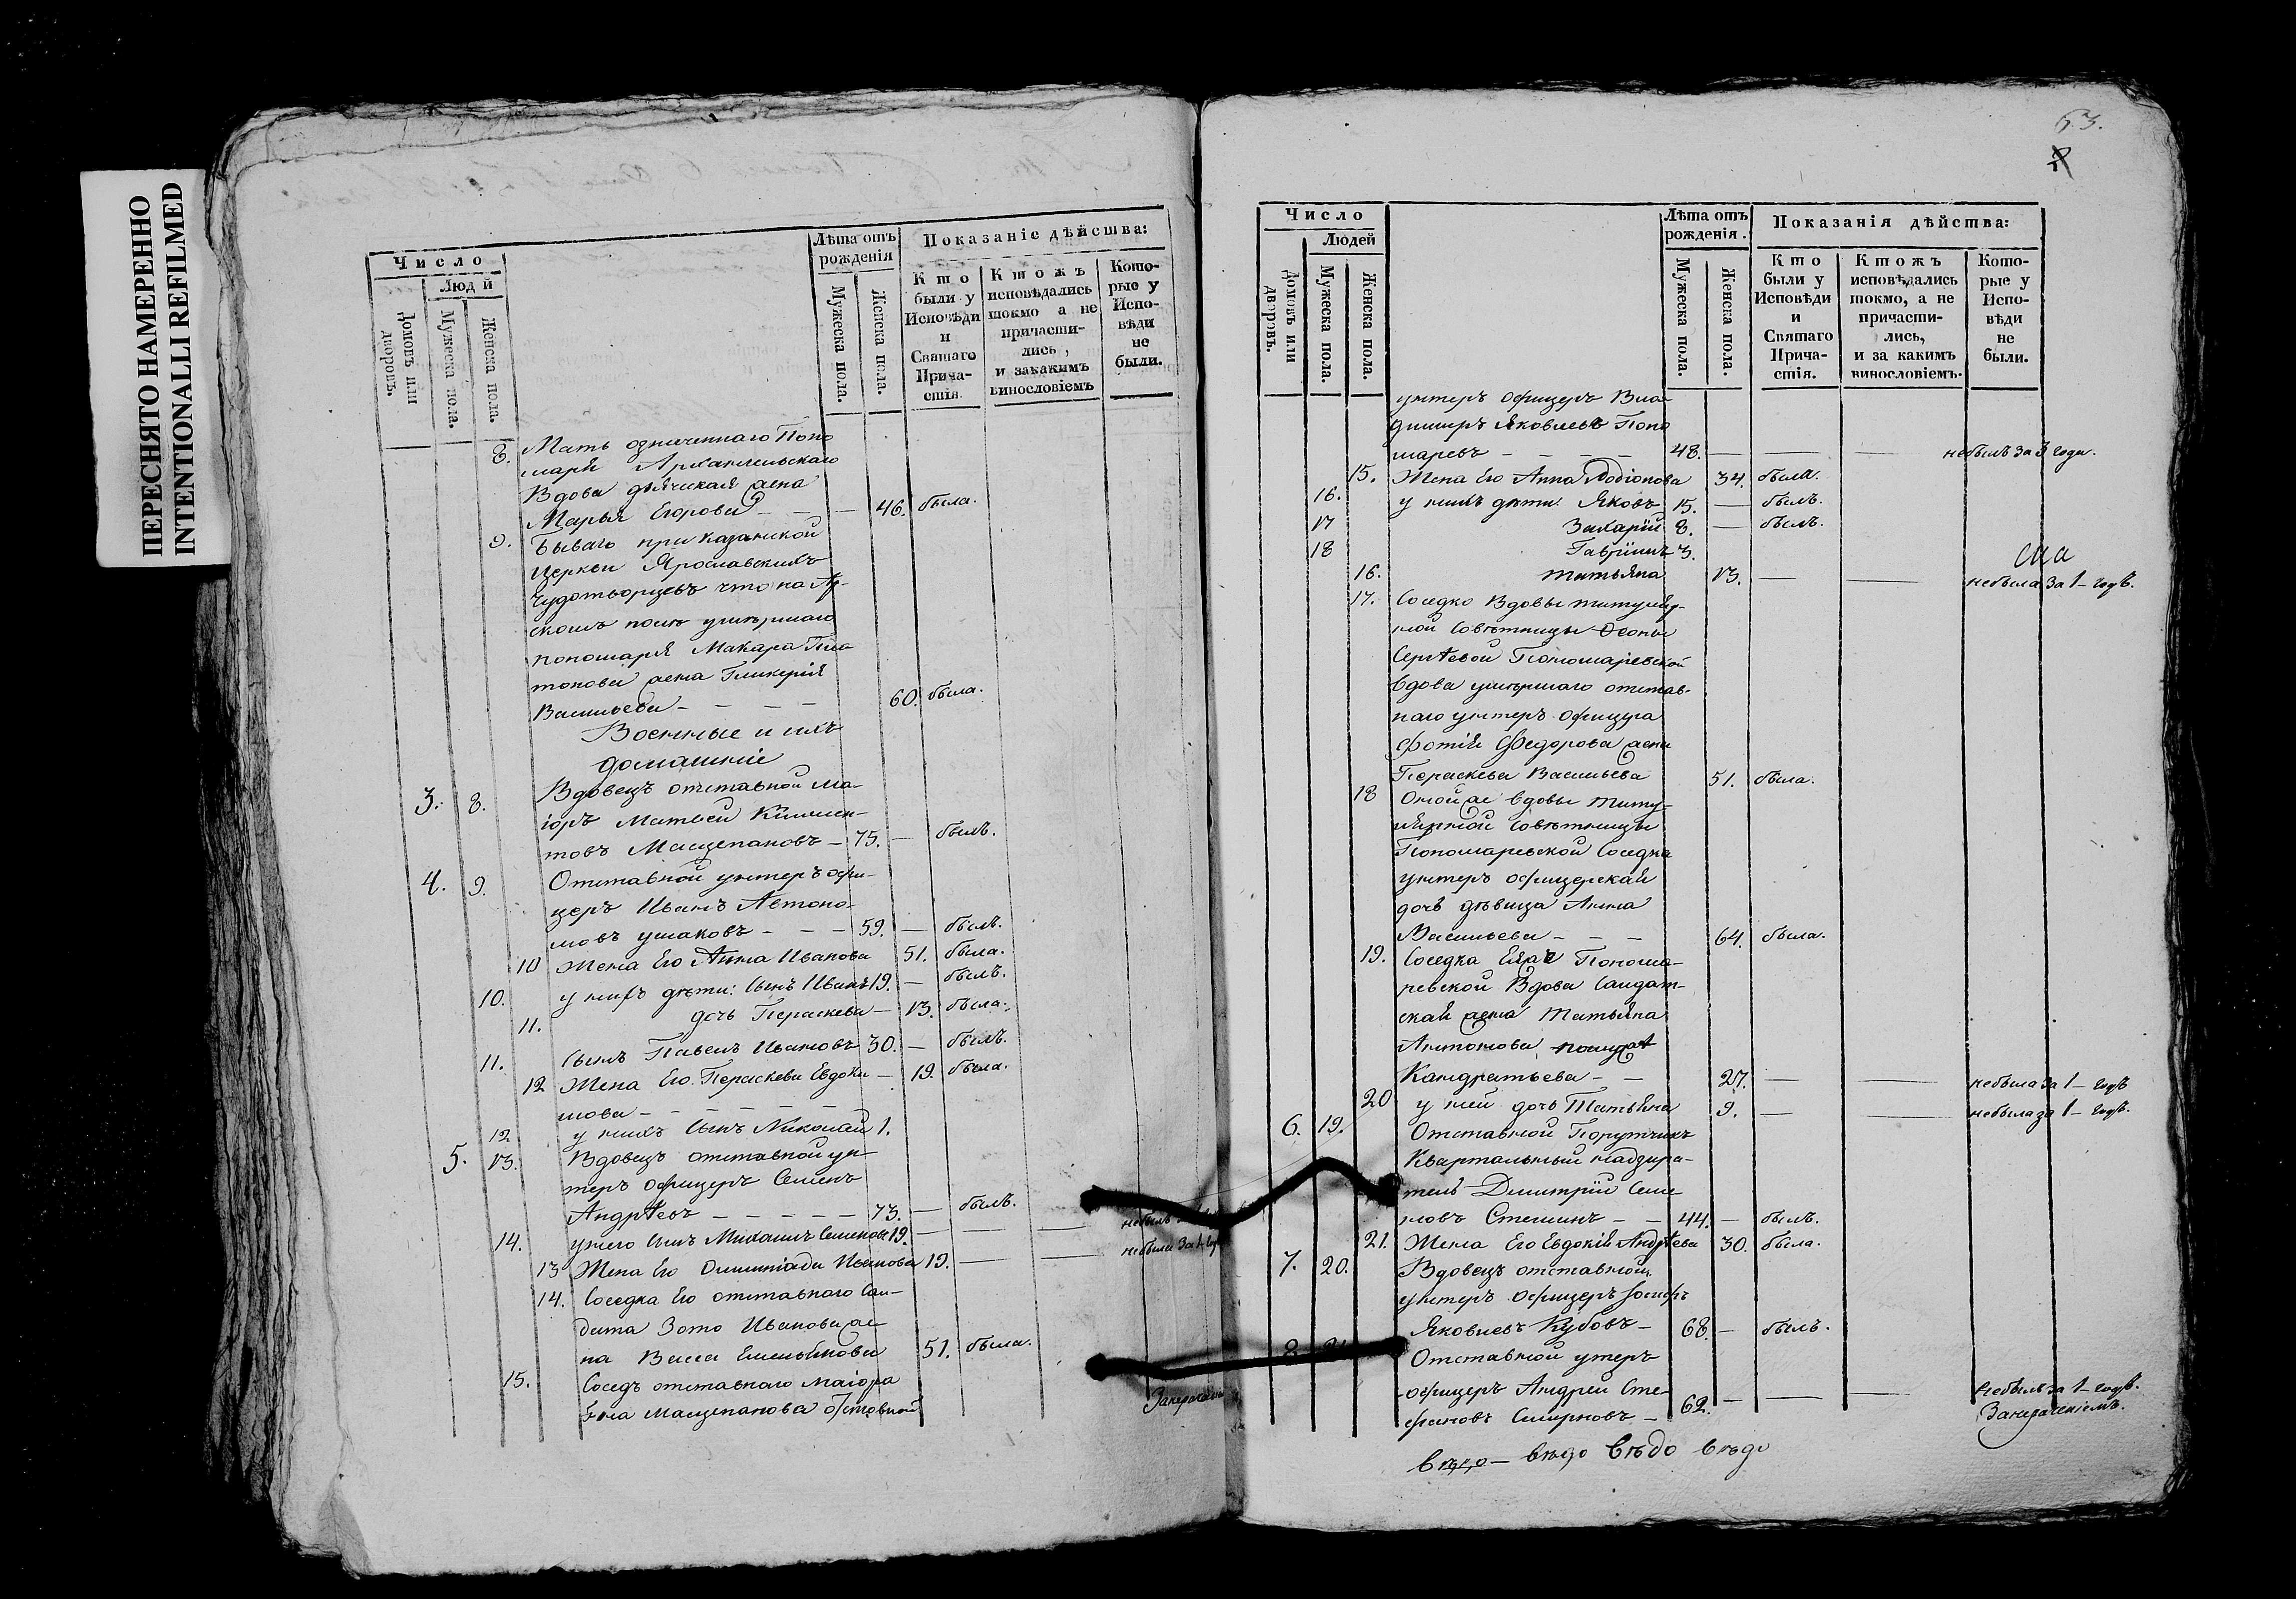 ПЕРЕСНЯТО НАМЕРЕННО
INTENTIONALLI REFILMED
Число
Людй
Домовъ или дворовъ.
Мужеска пола.
Женска пола.
Лѣта отъ рожденія
Мужеска пола.
Женска пола.
Показаніе дѣйства:
Кто были у Исповѣди и Святаго Причастія
Ктожъ исповѣдались токмо а не причастились, и закакимъ винословіемъ
Которые у Исповѣди не были.
8. Мать означеннаго Поно
маря Архангельскаго
Вдова дьяческая жена
Марья Егорова — — 46. была.
9. Бываго при казанской
Церкви Ярославскихъ
Чудотворцевъ что на Ар-
скомъ полѣ умершаго
пономаря Макара Пла
тонова жена Гликерія
Васильева — — — — 60. была.
Военные и ихъ
домашніе
3. 8. Вдовецъ отставной ма-
іоръ Матвей Климен-
товъ Мащепановъ — 75. — былъ.
4. 9. Отставной унтеръ офи-
церъ Иванъ Автоно-
мовъ ушаковъ — — — 59. — былъ.
10 Жена Его Анна Иванова 51. была.
10. у нихъ дѣти: Сынъ Иванъ 19. — былъ.
11. дочь Пераскева — 13. была.
11. Сынъ Павелъ Ивановъ 30. — былъ.
12 Жена Его Пераскева Евдоки — 19. была.
мова — — — — — —
12 у нихъ Сынъ Николай 1.
5. 13. Вдовецъ отставной ун-
теръ офицеръ Семенъ
Андрѣевъ — — — — — 73. — былъ.
14. у него Сынъ Михаилъ Семеновъ 19. — — — небылъ
13 Жена Его Олимпіада Иванова 19. — — небыла за 1-
14. Соседка Его отставнаго Сал-
дата Зота Иванова же-
на Васса Емельянова 51. была.
15. Соседъ отставнаго маіора
Мащепанова отставной
63.
Число
Людей
Домовъ или дворовъ.
Мужеска пола.
Женска пола.
Лѣта отъ рожденія.
Мужеска пола.
Женска пола.
Показанія дѣйства:
Кто были у Исповѣди и Святаго Причастія.
Ктожъ исповѣдались токмо, а не причастились, и за какимъ винословіемъ.
Которые у Исповѣди не были.
унтеръ офицеръ Вла
димиръ Яковлевъ Поно
маревъ — — — — 48. — — — небылъ за 3 года.
15. Жена Его Анна Родіонова 34. была.
16. у нихъ дѣти: Яковъ 15. — былъ.
17 Захарій 8. — былъ.
18 Гаврiилъ 3.
16. татьяна 13. — — небыла за 1 — годъ.
17. Соседка Вдовы титуляр-
ной Совѣтницы Ѳеоны
Сергѣевой Пономаревской
Вдова умершаго отстав-
наго унтеръ офицера
Фотія Федорова жена
Пераскева Васильева 51. была.
18 Оной же вдовы титу-
лярной Совѣтницы
Пономаревской Соседка
унтеръ офицерская
дочь дѣвица Анна
Васильева — — — 64. была.
19. Соседка Еяже Понома-
ревской Вдова Салдат-
ская жена Татьяна
Антонова
Кандратьева — — 27. — — небыла за 1 — годъ
20 у ней дочь Татьяна 9. — — небыла за 1 — годъ.
6. 19. Отставной Порутчикъ
Квартальный надзира-
тель Димитрій Семе
новъ Стешинъ — — 44. — былъ.
21. Жена Его Евдокія Андрѣева 30. была.
7. 20. Вдовецъ отставной
унтеръ офицеръ Іосифъ
Яковлевъ Кубовъ — 68. — былъ.
8. 21. Отставной утеръ
офицеръ Андрей Сте-
фановъ Смирновъ — 62. — — — небылъ за 1 — годъ.